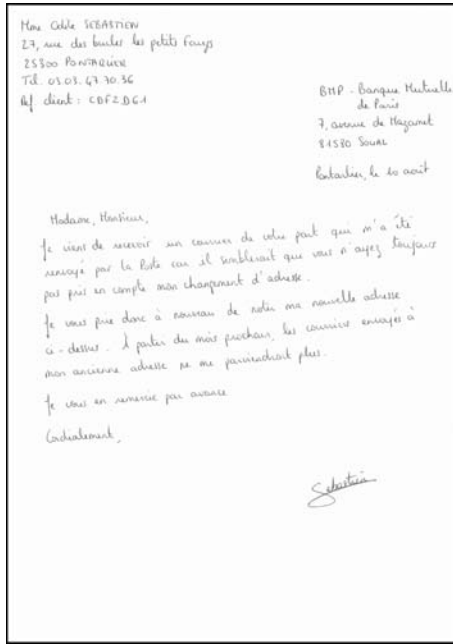 Mme Odile SEBASTIEN
27, rue des Fourgs
25300 PONTARLIER
Tél. 03.03.47.70.36
Réf. client : CDFZDG1
BMP - Banque Mutuelle
de Paris
7, avenue de Mazamet
81580 SOUAL
Pontarlier, le 10 août
Madame, Monsieur,
Je viens de recevoir un courrier de votre part qui m'a été
renvoyé par la Poste car il semblerait que vous n'ayez toujours
pas pris en compte mon changement d'adresse.
Je vous prie donc à nouveau de noter ma nouvelle adresse
ci-dessus. À partir du mois prochain, les courriers envoyés à
mon ancienne adresse ne me parviendront plus.
Je vous en remercie par avance
Cordialement,
Sebastien